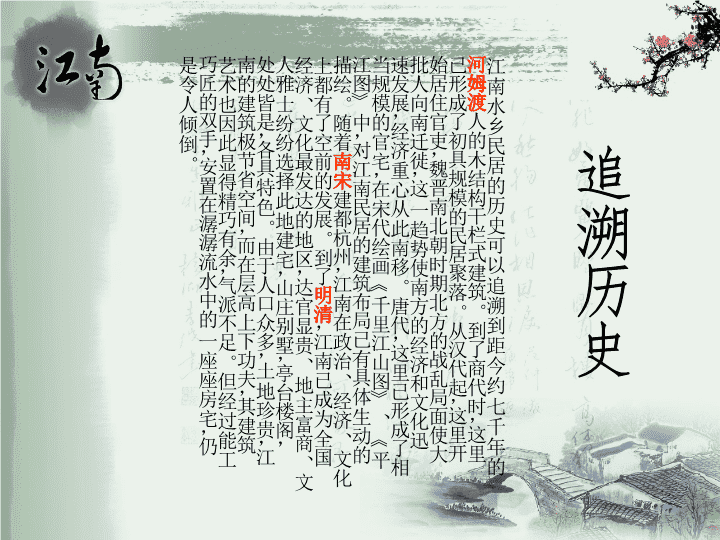 江南
追溯历史
江南水乡民居的历史可以追溯到距今约七千年的
河姆渡人的木结构干栏式建筑。到了商代时,这里
已形成了初具规模的民居聚落。从汉代起,这里开
始居住官吏,魏晋南北朝时期北方的战乱局面使大
批人向南迁徙,这一趋势使南方的经济和文化迅
速发展,经济重心从此南移。唐代,这里已形成了相
当规模的官宅,在宋代绘画《千里江山图》、《平
江图》中,对江南民居的建筑布局已有具体生动的
描绘。随着南宋建都杭州,江南在政治、经济、文化
上都有了空前的发展。到了明清,江南已成为全国
经济、文化最发达的地区,达官显贵、地主富商、文
人雅士纷纷选择此地建宅,山庄别墅,亭台楼阁,
处处皆是,各具特色。由于人口众多,土地珍贵,江
南的建筑极节省空间,而在层高上下功夫,其建筑
艺术也因此显得精巧有余,气派不足。但经过能工
巧匠的双手,安置在潺潺流水中的一座座房宅,仍
是令人倾倒。